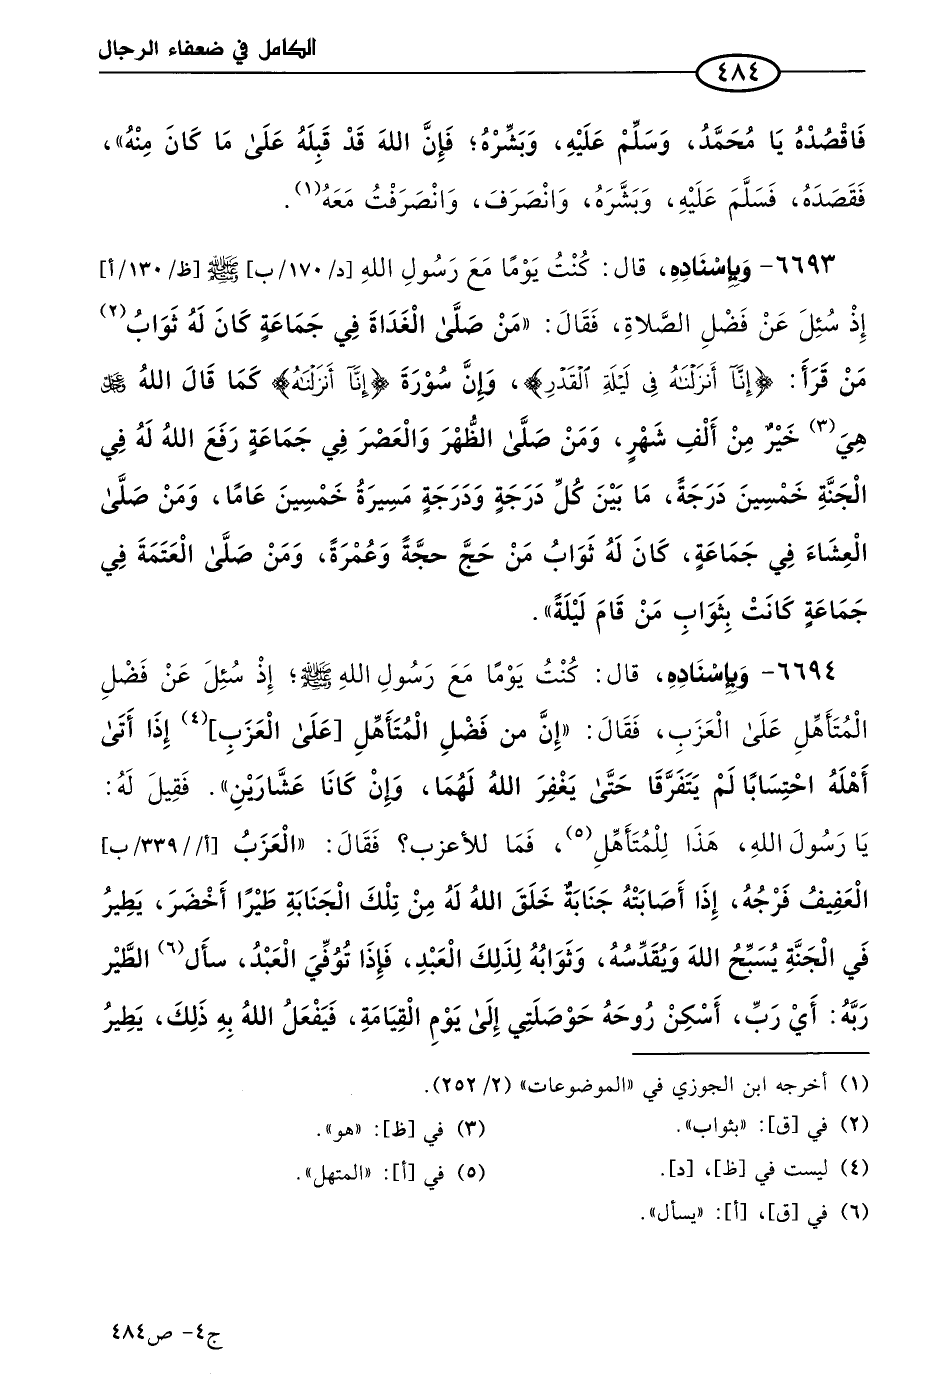 الكامل في ضعفاء الرجال
٤٨٤
فَاقْصُدْهُ يَا مُحَمَّدُ، وَسَلِّمْ عَلَيْهِ، وَبَشِّرْهُ؛ فَإِنَّ اللهَ قَدْ قَبِلَهُ عَلَىٰ مَا كَانَ مِنْهُ»،
فَقَصَدَهُ، فَسَلَّمَ عَلَيْهِ، وَبَشَّرَهُ، وَانْصَرَفَ، وَانْصَرَفْتُ مَعَهُ(١).
٦٦٩٣- وَبِإِسْنَادِهِ، قال: كُنْتُ يَوْمًا مَعَ رَسُولِ اللهِ [د/١٧٠/ب] ﷺ [ظ/١٣٠/أ]
إِذْ سُئِلَ عَنْ فَضْلِ الصَّلاةِ، فَقَالَ: «مَنْ صَلَّىٰ الْغَدَاةَ فِي جَمَاعَةٍ كَانَ لَهُ ثَوَابُ(٢)
مَنْ قَرَأَ: ﴿إِنَّآ أَنزَلْنَٰهُ فِى لَيْلَةِ ٱلْقَدْرِ﴾، وَإِنَّ سُوْرَةَ ﴿إِنَّآ أَنزَلْنَٰهُ﴾ كَمَا قَالَ اللهُ ﷻ
هِيَ(٣) خَيْرٌ مِنْ أَلْفِ شَهْرٍ، وَمَنْ صَلَّىٰ الظُّهْرَ وَالْعَصْرَ فِي جَمَاعَةٍ رَفَعَ اللهُ لَهُ فِي
الْجَنَّةِ خَمْسِينَ دَرَجَةً، مَا بَيْنَ كُلِّ دَرَجَةٍ وَدَرَجَةٍ مَسِيرَةُ خَمْسِينَ عَامًا، وَمَنْ صَلَّىٰ
الْعِشَاءَ فِي جَمَاعَةٍ، كَانَ لَهُ ثَوَابُ مَنْ حَجَّ حجَّةً وَعُمْرَةً، وَمَنْ صَلَّىٰ الْعَتَمَةَ فِي
جَمَاعَةٍ كَانَتْ بِثَوَابِ مَنْ قَامَ لَيْلَةً».
٦٦٩٤- وَبِإِسْنَادِهِ، قال: كُنْتُ يَوْمًا مَعَ رَسُولِ اللهِ ﷺ؛ إِذْ سُئِلَ عَنْ فَضْلِ
الْمُتَأَهِّلِ عَلَىٰ الْعَزَبِ، فَقَالَ: «إِنَّ من فَضْلِ الْمُتَأَهِّلِ [عَلَىٰ الْعَزَبِ](٤) إِذَا أَتَىٰ
أَهْلَهُ احْتِسَابًا لَمْ يَتَفَرَّقَا حَتَّىٰ يَغْفِرَ اللهُ لَهُمَا، وَإِنْ كَانَا عَشَّارَيْنِ». فَقِيلَ لَهُ:
يَا رَسُولَ اللهِ، هَذَا لِلْمُتَأَهِّلِ(٥)، فَمَا للأعزب؟ فَقَالَ: «الْعَزَبُ [أ//٣٣٩/ب]
الْعَفِيفُ فَرْجُهُ، إِذَا أَصَابَتْهُ جَنَابَةٌ خَلَقَ اللهُ لَهُ مِنْ تِلْكَ الْجَنَابَةِ طَيْرًا أَخْضَرَ، يَطِيرُ
فَي الْجَنَّةِ يُسَبِّحُ اللهَ وَيُقَدِّسُهُ، وَثَوَابُهُ لِذَلِكَ الْعَبْدِ، فَإِذَا تُوُفِّيَ الْعَبْدُ، سأل(٦) الطَّيْر
رَبَّهُ: أَيْ رَبِّ، أَسْكِنْ رُوحَهُ حَوْصَلَتِي إِلَىٰ يَوْمِ الْقِيَامَةِ، فَيَفْعَلُ اللهُ بِهِ ذَلِكَ، يَطِيرُ
(١) أخرجه ابن الجوزي في «الموضوعات» (٢/ ٢٥٢).
(٢) في [ق]: «بثواب». (٣) في [ظ]: «هو».
(٤) ليست في [ظ]، [د]. (٥) في [أ]: «المتهل».
(٦) في [ق]، [أ]: «يسأل».
ج٤- ص٤٨٤